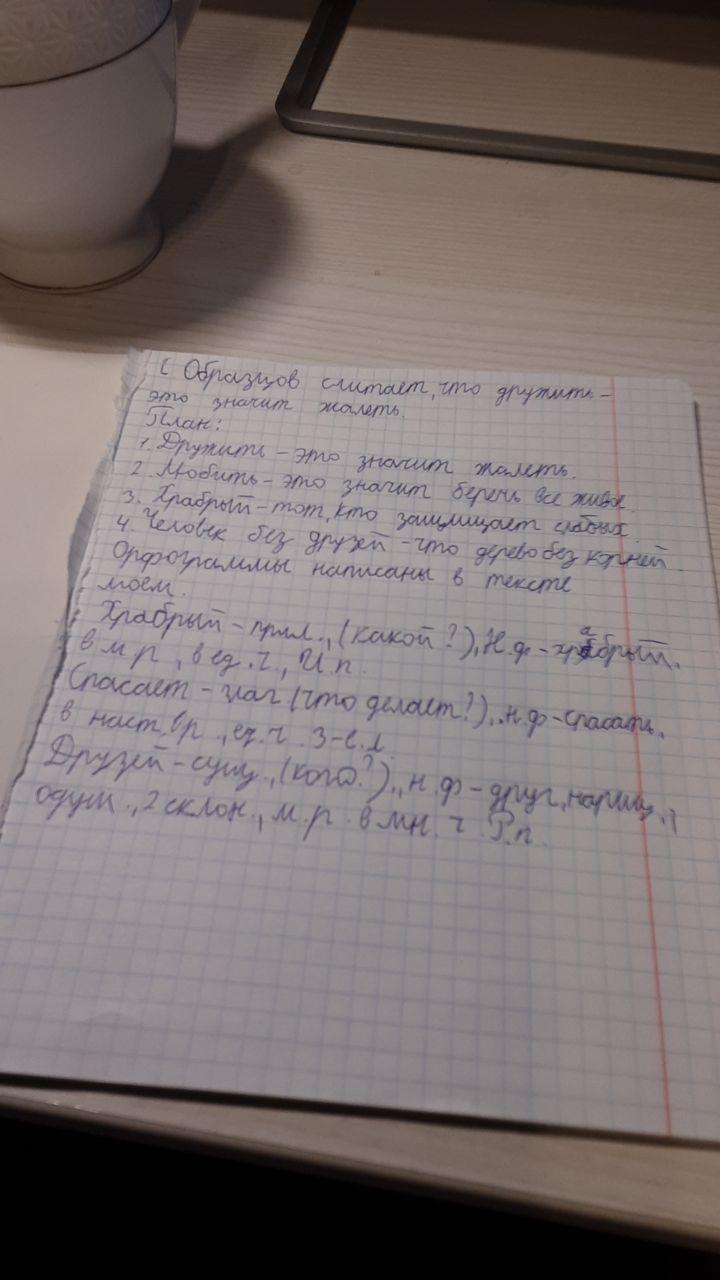 ( Образцов считает, что дружить -
это значит жалеть.
План:
1. Дружить - это значит жалеть.
2. Любить - это значит беречь все живое.
3. Храбрый - тот, кто защищает слабых.
4. Человек без друзей - что дерево без корней.
Орфограммы написаны в тексте
моем.
Храбрый - прил., (какой?), Н.ф - храбрый.
в м.р., в ед. ч., И.п.
Спасает - глаг (что делает?), н.ф - спасать,
в наст. вр., ед. ч. 3-е л.
Друзей - сущ., (кого?), н.ф - друг, нариц.,
одуш., 2 склон., м.р. в мн. ч. Р.п.